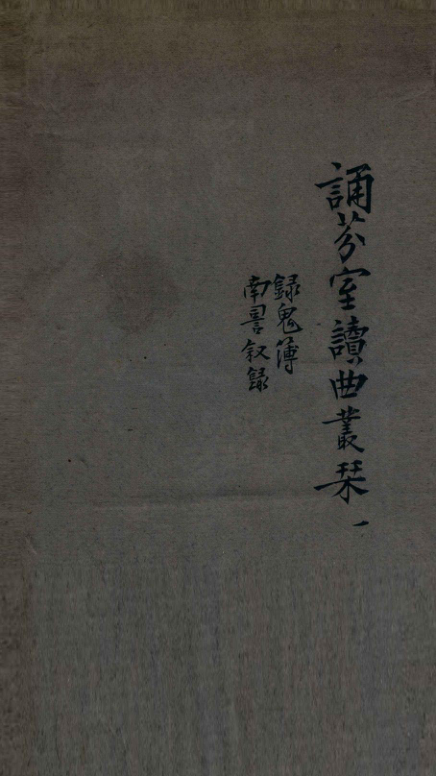 誦芬室讀曲叢栞 一
録鬼簿
南詈叙録